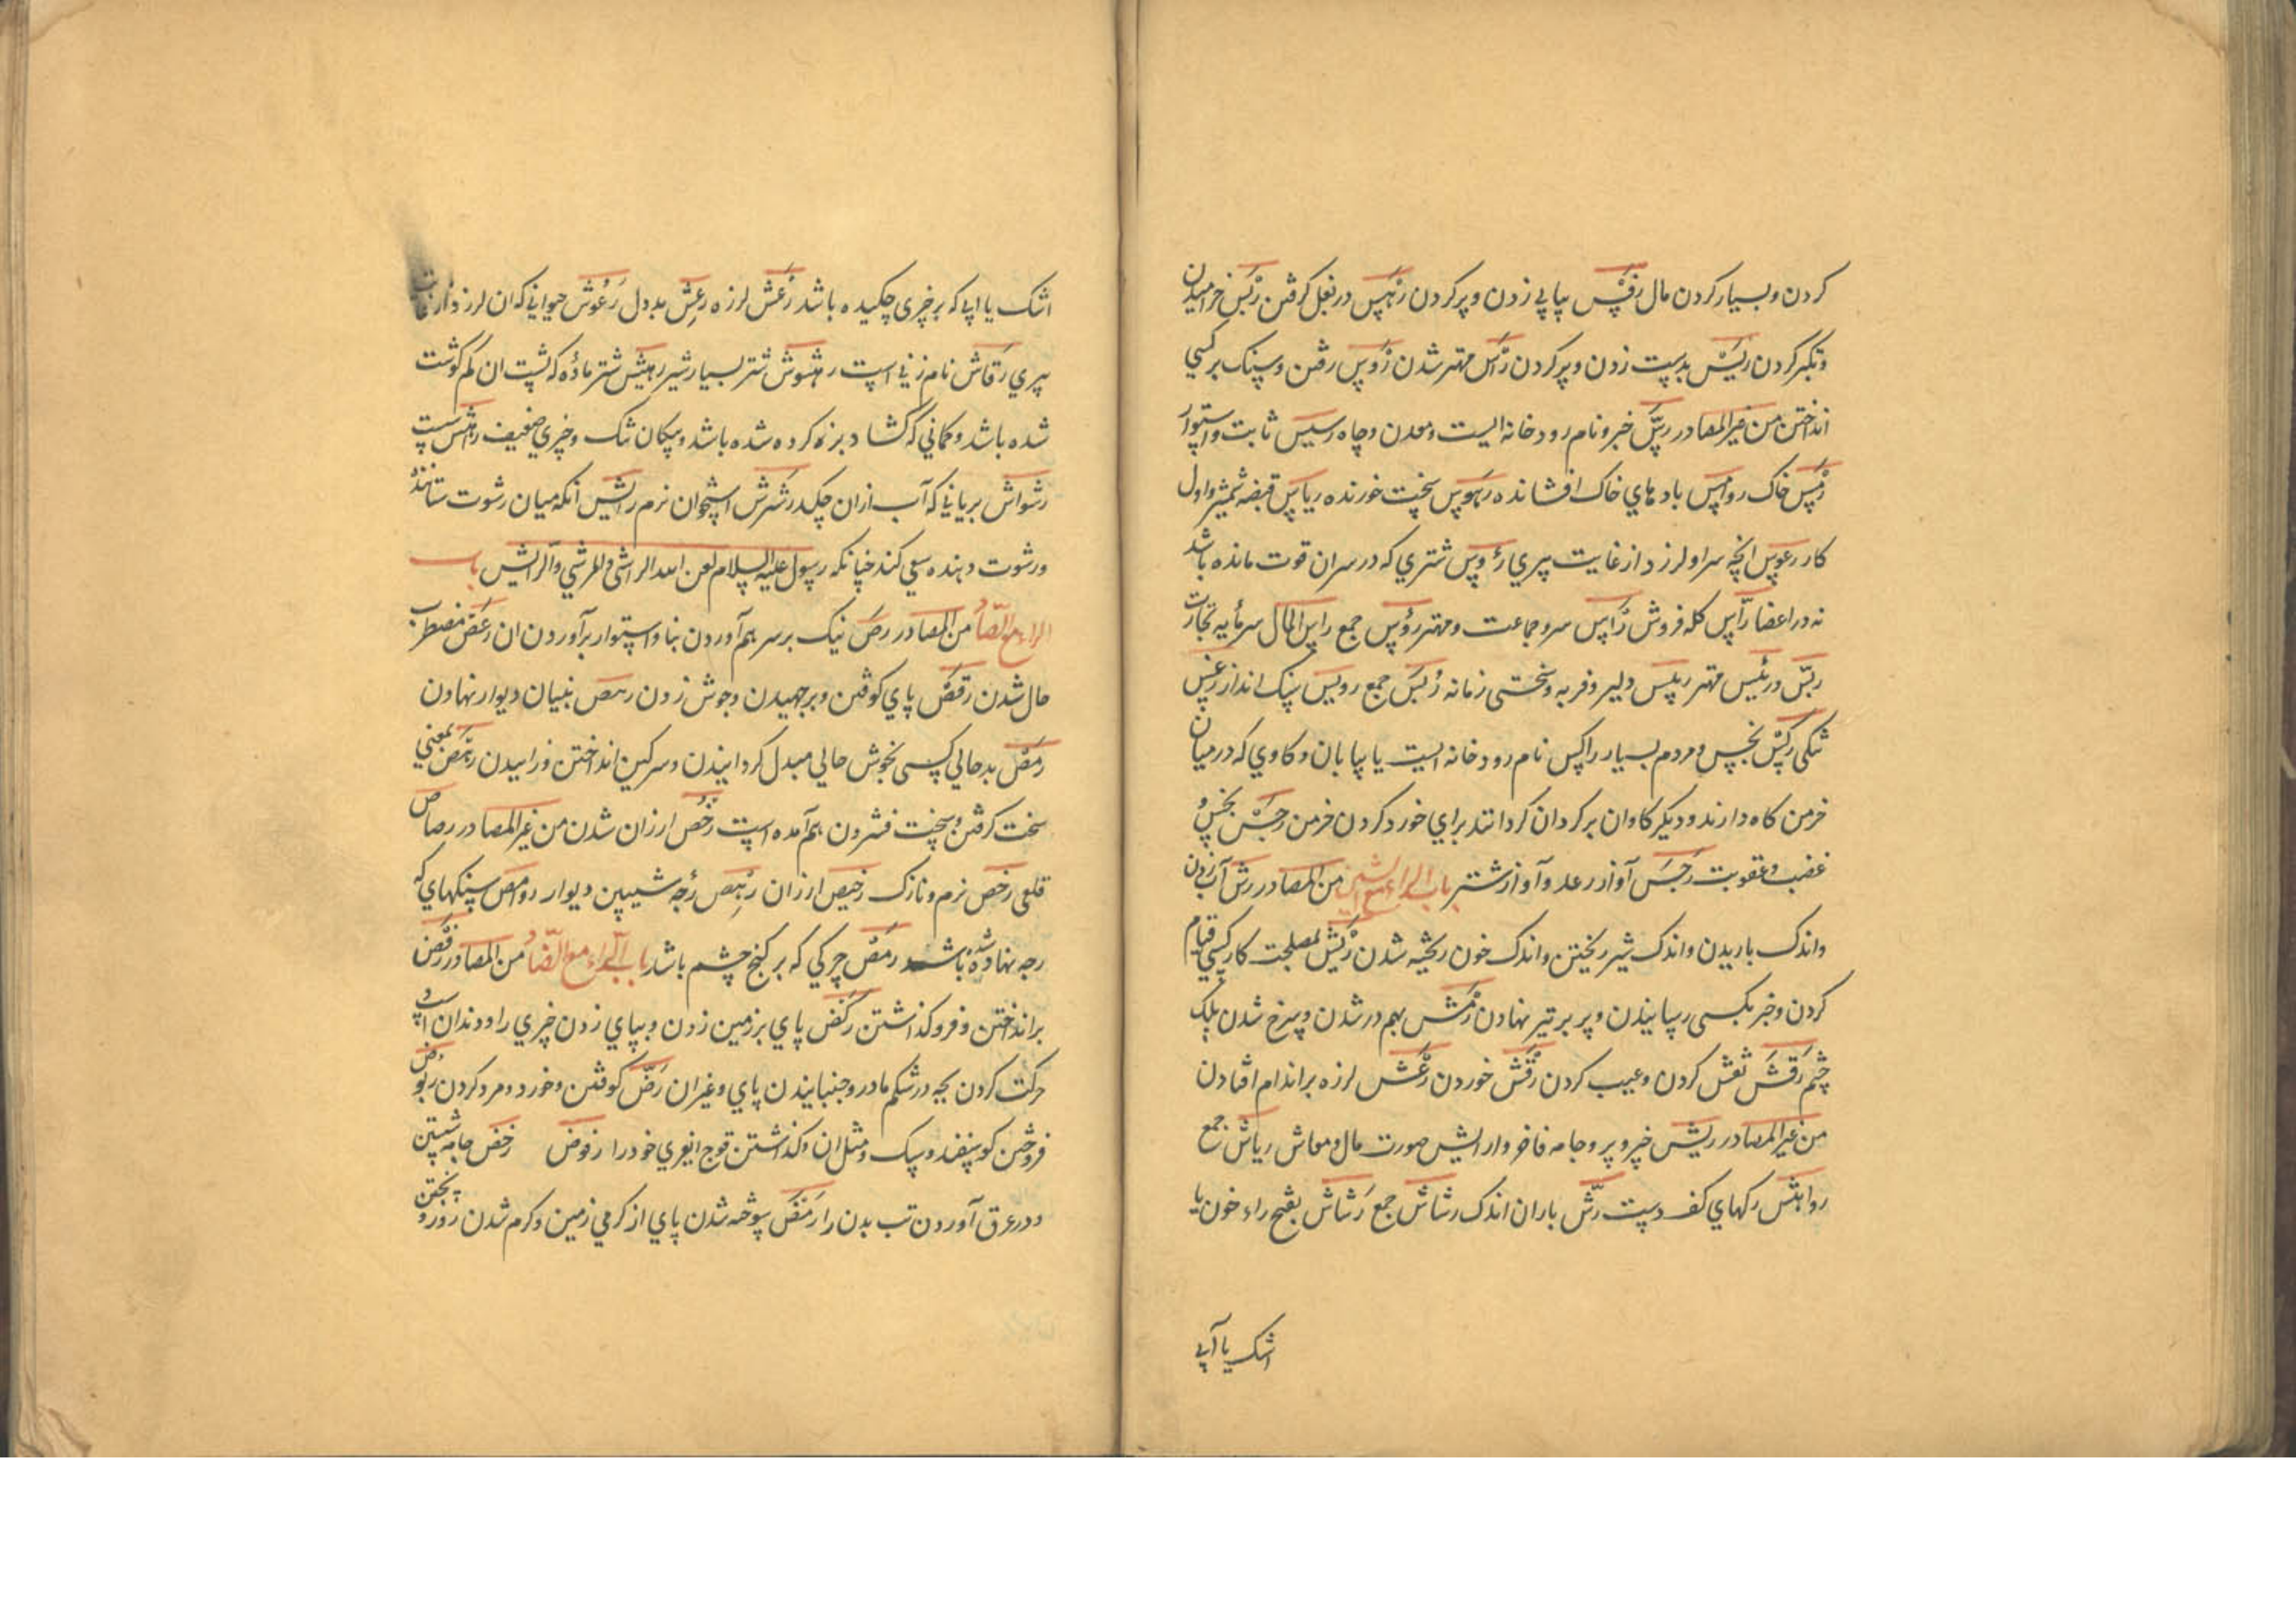 کردن و بسیار کردن مال رفس بپای زدن و پر کردن رهس در بغل کرفتن ریس خرامیدن
و تکبر کردن ریس بدست زدن و پر کردن رأس مهتر شدن روس رفتن و سنک بر کسی
انداختن من غیر المصادر رس خبر و نام رودخانه ایست و معدن و چاه رسیس ثابت و استوار
رمس خاک روامس بادهای خاک افشاننده رهوس سخت خورنده ریاس قبضه شمشیر و اول
کار رعوس انچه سر او لرزد از غایت پیری رؤوس شتری که در سر ان قوت مانده باشد
نه در اعضا رآس کله فروش رأس سر و جماعت و مهتر رؤس جمع راس المال سرمایه تجارت
ریس و رئیس مهتر ربیس دلیر و فربه و سختی زمانه ربس جمع رویس سنک انداز رغس
نیکی رکس نجس و مردم بسیار راکس نام رودخانه ایست یا بیابان و کاوی که در میان
خرمن کاه دارند و دیکر کاوان بر کرد ان کردانند برای خورد کردن خرمن رجس نجس و
غضب و عقوبت رجس آواز رعد و آواز شتر باب الراء مع الشین من المصادر رش آب زدن
و اندک باریدن و اندک شیر ریختن و اندک خون ریخته شدن ریش لمصلحت کار کسی قیام
کردن و خیر بکسی رسانیدن و پر بر تیر نهادن رمش بهم در شدن و سرخ شدن پلک
چشم رقش نقش کردن و عیب کردن رفش خوردن رعش لرزه بر اندام افتادن
من غیر المصادر ریش خیر و پر و جامه فاخر و ارایش صورت مال و معاش ریاش جمع
رواهش رکهای کف دست رش باران اندک رشاش جمع رشاش بفتح راء خون یا
اشک یا آبی
اشک یا ابی که بر چیزی چکیده باشد رعش لرزه رعش بددل رعوش حیوانی که ان لرزد از غایت
پیری رقاش نام زنی است رهشوش شتر بسیار شیر رهیش شتر ماده که پشت ان کم کوشت
شده باشد و کمانی که کشاد بزه کرده شده باشد و پیکان تنک و چیزی ضعیف راش سست
رشراش بریانی که آب از ان چکد رشرش استخوان نرم رایش انکه میان رشوت ستاننده
و رشوت دهنده سعی کند چنانکه رسول علیه السلام لعن الله الراشی و المرتشی و الرایش باب
الراء مع الصاد من المصادر رص نیک بر سر هم آوردن بنا و استوار برآوردن ان رعص مضطرب
حال شدن رقص پای کوفتن و برجهیدن و جوش زدن رهص بنیان دیوار نهادن
رمص بد حالی کسی بخوش حالی مبدل کردانیدن و سرکین انداختن و زاییدن رهص بمعنی
سخت کرفتن و سخت فشردن هم آمده است رخص ارزان شدن من غیر المصادر رصاص
قلعی رخص نرم و نازک رخیص ارزان رهص رجه شیبین دیوار رواهص سنکهای که
رجه نهاده شده باشد رمص چرکی که بر کنج چشم باشد باب الراء مع الضاد من المصادر رفض
برانداختن و فرو کذاشتن رکض پای بر زمین زدن و بپای زدن چیزی را و دندان اسپ و
حرکت کردن بچه در شکم مادر و جنبانیدن پای و غیر ان رض کوفتن و خورد و مرد کردن ربوض
فرو خفتن کوسفند و سک و مثل ان و کذاشتن قوچ انچری خود را رفوض رحض جامه شستن
و در عرق آوردن تب بدن را رمض سوخته شدن پای از کرمی زمین و کرم شدن روز و پختن